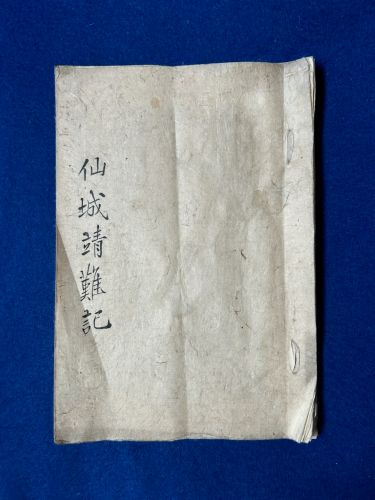 仙城靖難記